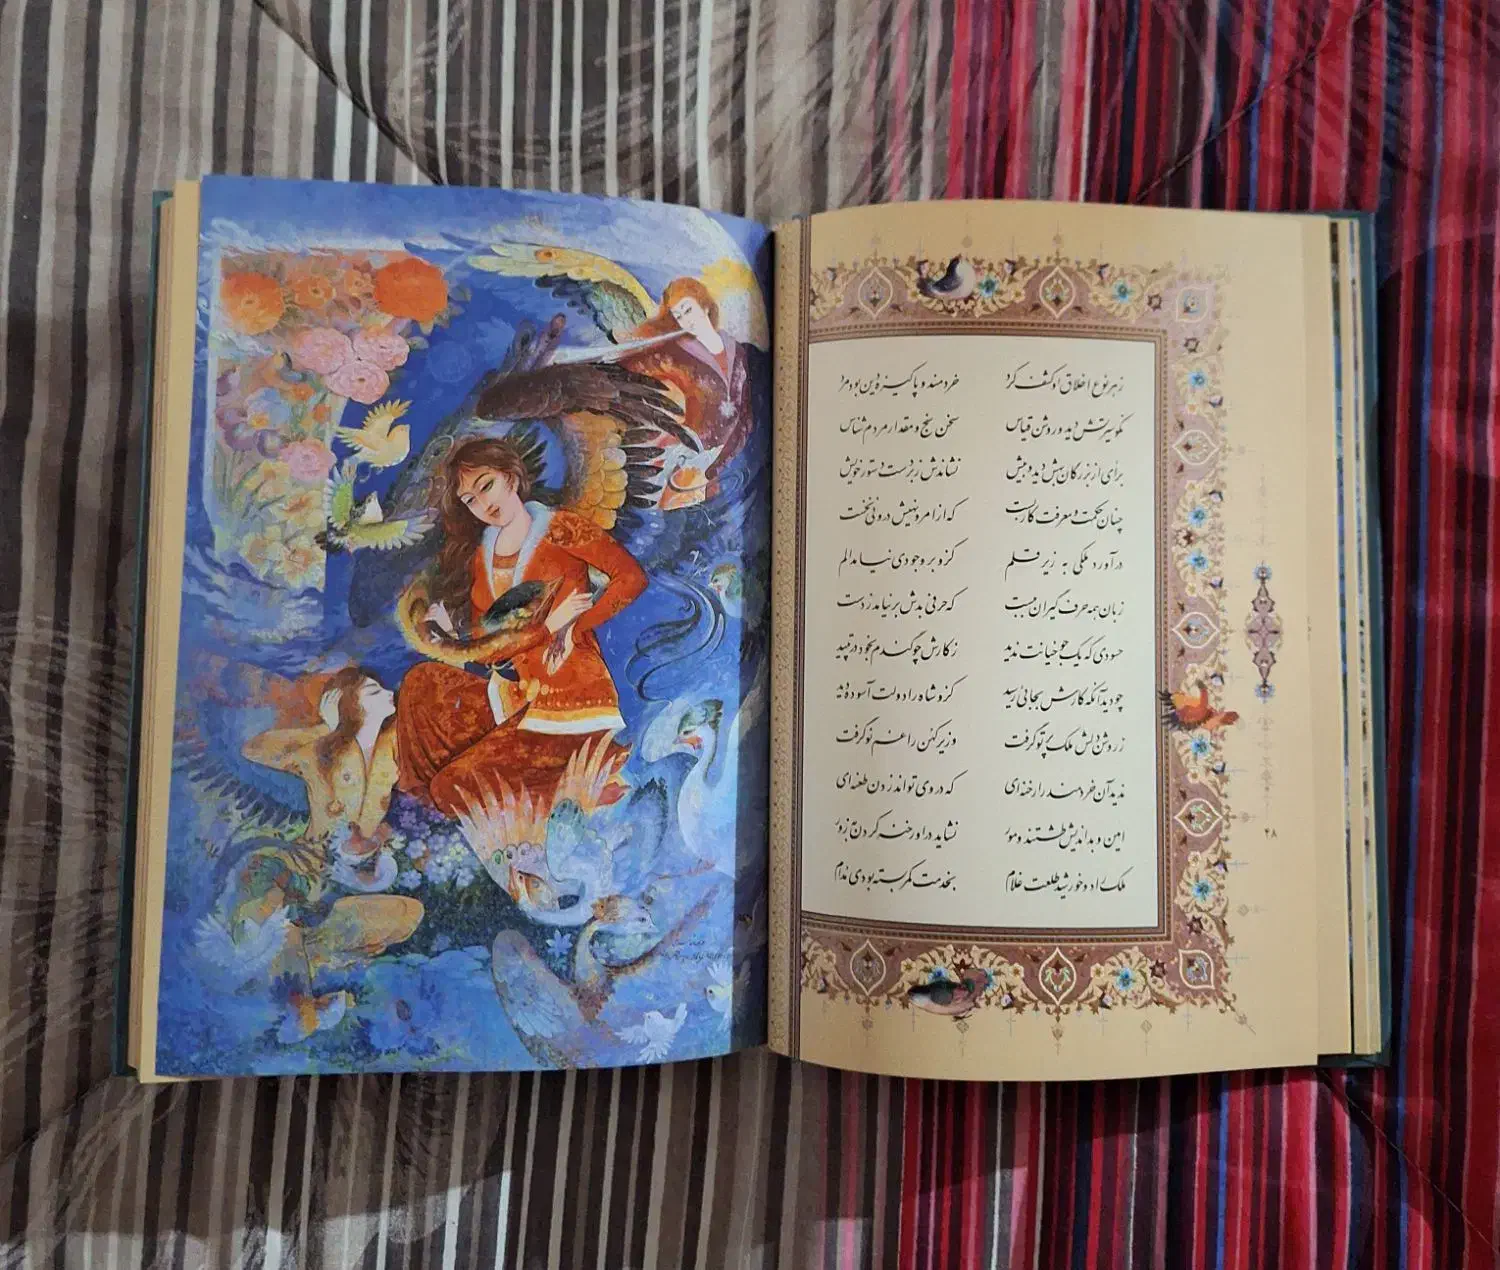 زهر نوع اخلاق او کشف کرد خردمند و پاکیزه دین بود مرد
نکو سیرتش دید و روشن قیاس سخن سنج و مقدار مردم شناس
برای از بزرگان بهش دید و بیش نشاندش زبردست دستور خویش
چنان حکمت و معرفت کار بست که از امر و نهیش درونی نخست
در آورد ملکی به زیر قلم کزو بر وجودی نیامد الم
زبان همه حرف گیران ببست که حرفی بدش بر نیامد ز دست
حسودی که یک جو خیانت ندید ز کارش چو گندم بخود در تپید
چو دید آنکه کارش بجائی رسید کزو شاه را دولت آسوده دید
ز روشن دلش ملک پرتو گرفت وزیر کهن را غم نو گرفت
ندید آن خردمند را رخنه‌ای که در وی تواند زدن طعنه‌ای
امین و بداندیش طشتند و مور نشاید در او رخنه کردن بزور
ملک را دو خورشید طلعت غلام بخدمت کمر بسته بودی مدام
۴۸